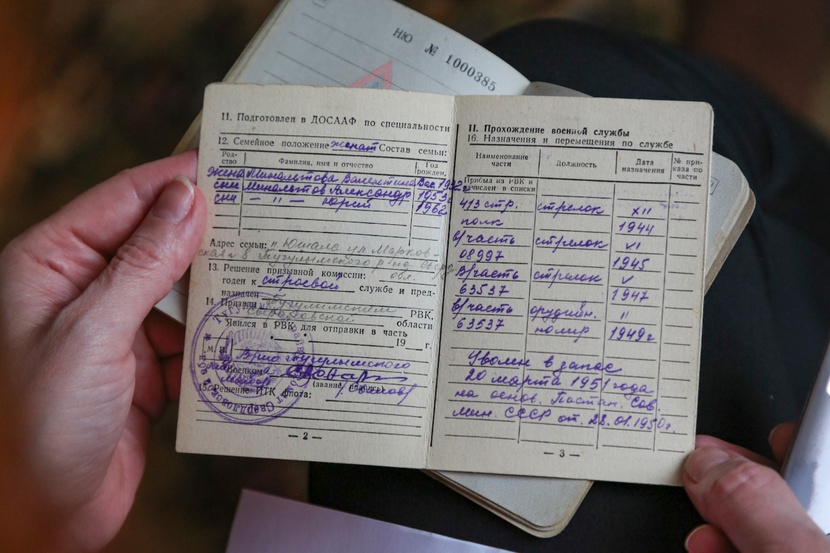 НЮ № 1000385
11. Подготовлен в ДОСААФ по специальности
12. Семейное положение женат Состав семьи:
Родство
Фамилия, имя и отчество
Год рожден.
жена Минальтова Валентина
сын Минальтов Александр 1953
сын —"— Юрий 1962
Адрес семьи:
13. Решение призывной комиссии: обл.
годен к строевой службе и пред-
назначен
14. Призван Тугулымским РВК,
Свердловской области
Явился в РВК для отправки в часть
19 г.
М. П. Врио Тугулымского
Военком
(звание, подпись)
15. Решение ПТК флота:
— 2 —
II. Прохождение военной службы
16. Назначения и перемещения по службе
Наименование части
Должность
Дата назначения
№ приказа по части
Прибыл из РВК и зачислен в списки
413 стр. стрелок XII
полк 1944
в/часть стрелок VI
08997 1945
в/часть стрелок V
63537 1947
в/часть орудийн. "
63537 номер 1949 г
Уволен в запас
20 марта 1951 года
на основ. Постан. Сов.
Мин. СССР от. 28.01.1950г.
— 3 —